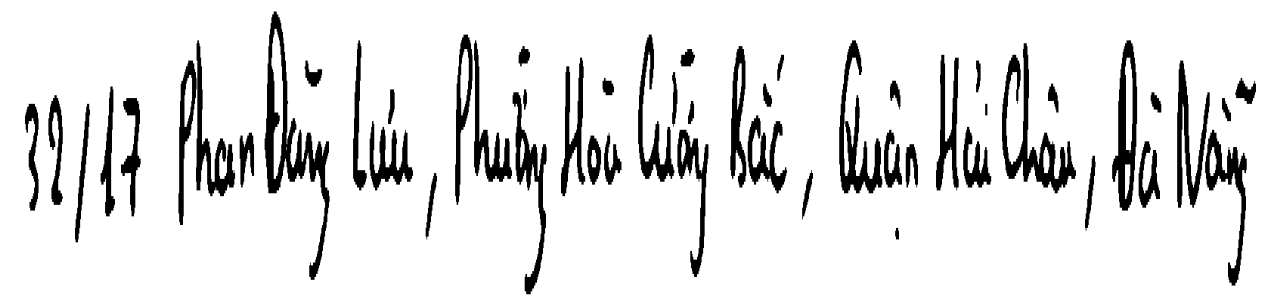 32/17 Phan Đăng Lưu, Phường Hòa Cường Bắc, Quận Hải Châu, Đà Nẵng